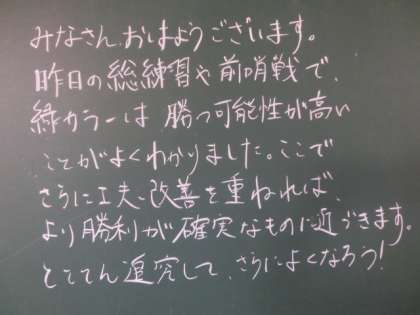 みなさん、おはようございます。
昨日の総練習や前哨戦で、
緑カラーは勝つ可能性が高い
ことがよくわかりました。ここで
さらに工夫・改善を重ねれば、
より勝利が確実なものに近づきます。
とことん追究して、さらによくなろう!